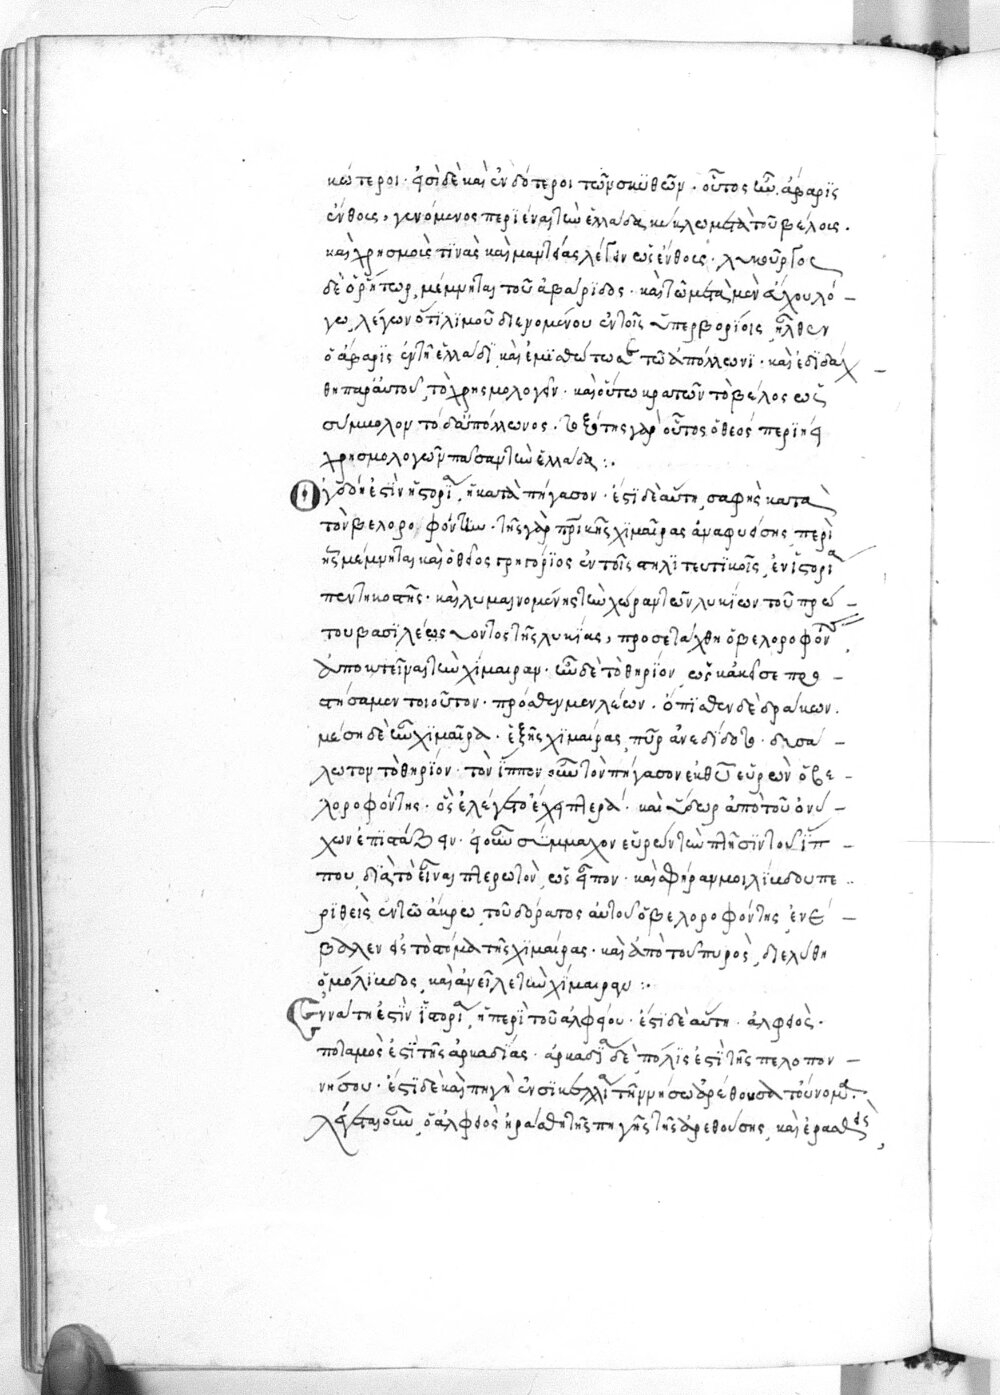 κώτεροι· φησὶ δὲ καὶ ἐνδότεροι τῶν σκυθῶν· οὗτος οὖν ἄβαρϊς
ἔνθους, γενόμενος περϊήει τὴν ἑλλάδα κύκλω μετὰ τοῦ βέλους.
καὶ χρησμοὺς τϊνὰς καὶ μαντείας λέγων ὡς ἔνθους· λυκοῦργος
δὲ ὁ ῥήτωρ, μέμνηται τοῦ ἀβάρϊδος· καὶ τῶ μετὰ μεν λό –
γω, λέγων ὅτι λϊμοῦ γενομένου ἐν τοῖς ὑπερβορίοις, ἦλθεν
ὁ ἄβαρϊς ἐν τῆ ἑλλάδϊ καὶ ἐμϊσθώτωσε τῶ ἀπόλλωνϊ· καὶ ἐδϊδάχ –
θη παρ' αὐτοῦ, τὸ χρησμολογεῖν· καὶ οὕτω κρατῶν τὸ βέλος ὡς
σύμβολον τὸ τοῦ ἀπόλλωνος· τοξότης γὰρ οὗτος ὁ θεός περϊήει
χρησμολογῶν πᾶσαν τὴν ἑλλάδα :·
Ογδόη ἐστὶν ἡ ἱστορία, ἡ κατὰ πήγασον· ἔστϊ δὲ αὕτη, σαφὴς κατὰ
τὸν βελοροφόντην· τῆς γὰρ πατρικῆς χϊμαίρας ἀναφυείσης, περὶ
ἧς μέμνηται καὶ ὁ θεῖος γρηγόρϊος ἐν τοῖς στηλϊτευτϊκοῖς, ἐν ἱστορία
πεντηκοστῆς· καὶ λυμαινομένης τὴν χώραν τῶν λυκίων τοῦ πρω –
του βασϊλέως ὄντος τῆς λυκίας, προσετάχθη ὁ βελοροφόντης
ἀποκτεῖναι τὴν χίμαιραν· ἦν δὲ τὸ θηρίον, ὡς κἀκεῖσε πρ –
στήσαμεν τοιοῦτον· πρόσθεν μεν λέων· ὄπϊσθεν δὲ δράκων.
μέση δὲ ἦν χϊμαῖρα· ἐξ ἧς χϊμαίρας, πῦρ ἀνεδίδοτο· δυσά –
λωτον τὸ θηρίον· τὸν ἵππον οὖν τὸν πήγασον ἐκθ εὑρὼν ὁ βε –
λοροφόντης· ὃς ἐλέγετο ἔχειν πτερά· καὶ ὕδωρ ἀπὸ τοῦ ὀνύ –
χων ἐπϊστάζειν· οὖν σύμμαχον εὑρὼν τὴν πτῆσϊν τοῦ ἵπ –
που, δϊὰ τὸ εἶναι πτερωτὸν, ὡς εἶπον· καὶ μόλϊκδου πε –
ρϊθεὶς ἐν τῶ ἄκρω τοῦ δόρατος αὐτοῦ ὁ βελοροφόντης, ἐνέ –
βαλεν εἰς τὸ στόμα τῆς χϊμαίρας· καὶ ἀπὸ τοῦ πυρὸς, διελύθη
ὁ μόλϊκδος, καὶ ἀνεῖλε τὴν χίμαιραν :·
Εννάτη ἐστϊν ἱστορία, ἡ περὶ τοῦ ἀλφειοῦ· ἔστϊ δὲ αὕτη· ἀλφειὸς·
ποταμὸς ἐστϊ τῆς ἀρκαδίας· ἀρκαδία δὲ πόλϊς ἐστὶ τῆς πελοπον –
νήσου· ἔστϊ δὲ καὶ πηγὴ ἐν σϊκελλία τῆ νήσω ἀρέθουσα τὸ ὄνομα·
λέγεται οὖν, ὁ ἀλφειὸς ἠράσθη τῆς πηγῆς τῆς ἀρεθούσης, καὶ ἐρασθεὶς,